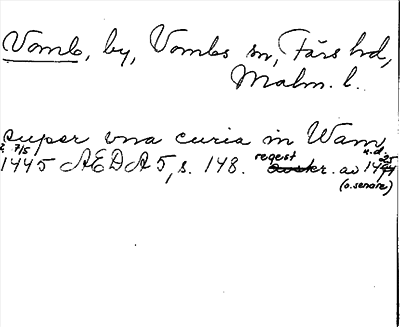 Vomb, by, Vombs sn, Färs hd,
Malm. l.
super vna curia in Wam
7/5 u.d.
1445 ÆDA 5, s. 148. regest avskr. av 1425
(o. senare)